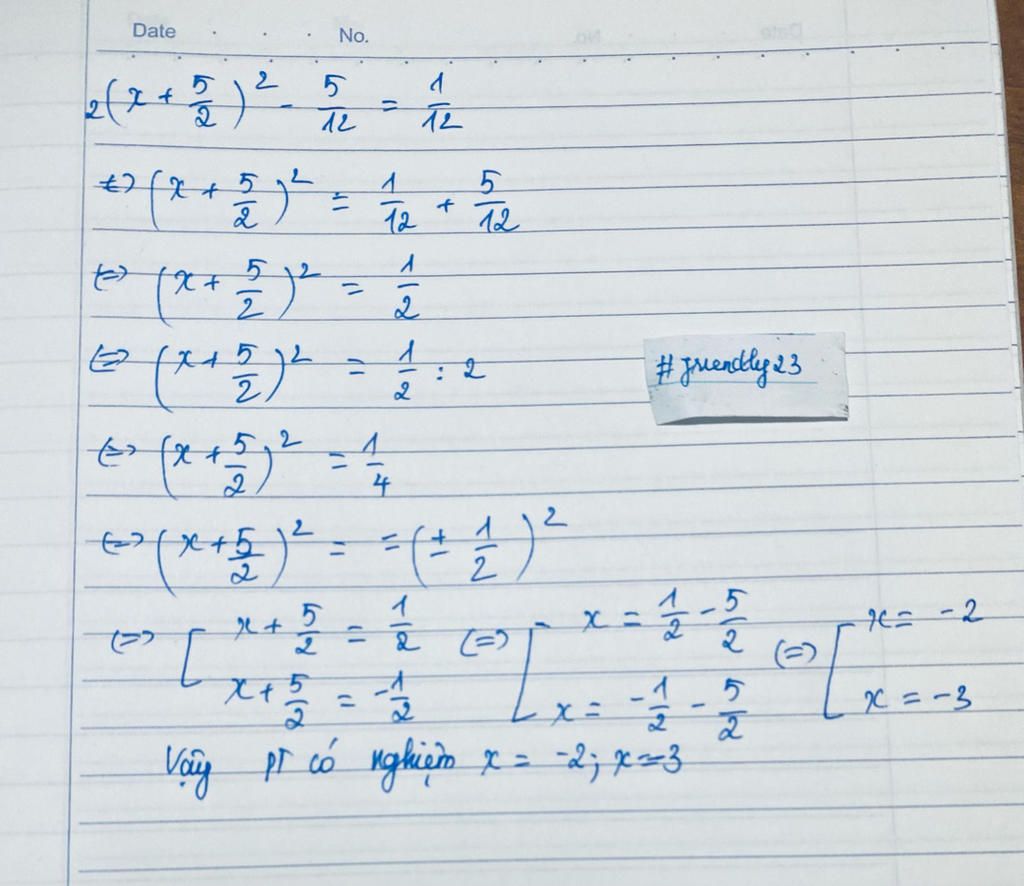 Date . . . No.
2(x + 5/2)² - 5/12 = 1/12
<=> (x + 5/2)² = 1/12 + 5/12
<=> (x + 5/2)² = 1/2
<=> (x + 5/2)² = 1/2 : 2
#friendly23
<=> (x + 5/2)² = 1/4
<=> (x + 5/2)² = = (± 1/2)²
<=> [ x + 5/2 = 1/2 <=> [ x = 1/2 - 5/2 <=> [ x = -2
x + 5/2 = -1/2 x = -1/2 - 5/2 x = -3
Vậy pT có nghiệm x = -2; x = -3